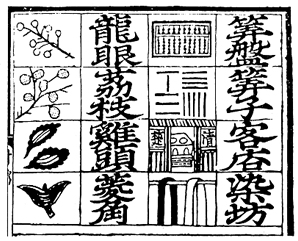 筭盤筭子客店染坊
龍眼荔枝雞頭菱角